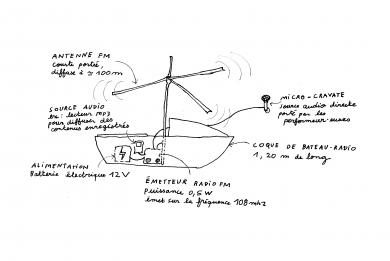 ANTENNE FM
courte portée,
diffuse à ≃ 100m
SOURCE AUDIO
ex: lecteur mp3
pour diffuser des
contenus enregistrés
MICRO-CRAVATE
source audio directe
porté par les
performeur·euses
COQUE DE BATEAU-RADIO
1,20 m de long
ALIMENTATION
Batterie électrique 12V
ÉMETTEUR RADIO FM
Puissance 0,5W
émet sur la fréquence 108 mhz